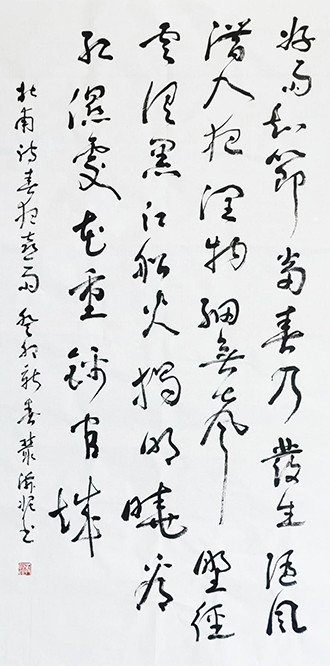 好雨知節當春乃發生隨風
潛入夜潤物細無聲野徑
雲俱黑江船火獨明曉看
紅濕處花重錦官城
杜甫詩春夜喜雨癸卯新春叢書